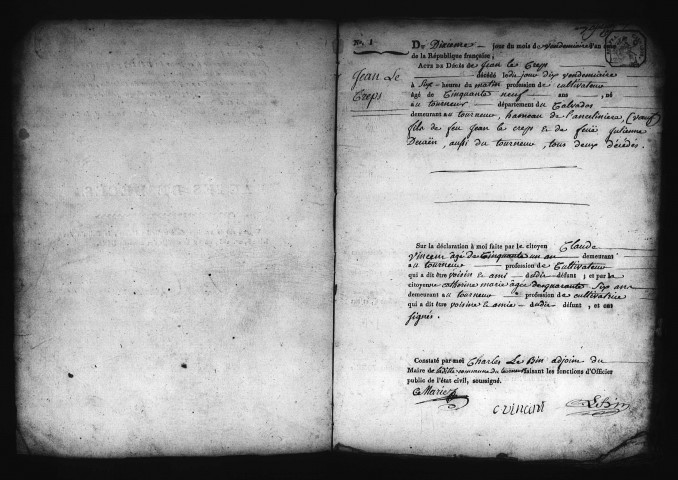 No. 1
Jean Le
Creps
Du Dixieme jour du mois de vendemiaire l'an
de la République française ;
Acte de Décès de Jean le Creps
décédé le du jour dix vendemiaire
à Sept heures du matin profession de cultivateur
âgé de Cinquante neuf ans , né
au tourneur département du Calvados
demeurant au tourneur, hameau de
fils de feu Jean le creps & de feüe Julienne
aussi du tourneur, tous deux décédés.
Sur la déclaration à moi faite par le citoyen Claude
vincent âgé de Cinquante un an demeurant
au tourneur profession de Cultivateur
qui a dit être voisin & ami dudit défunt ; et par la
citoyenne catherine marie âgée de quarante Six ans
demeurant au tourneur profession de cultivatrice
qui a dit être voisine & amie dudit défunt , et ont
signés.
Constaté par moi Charles Le Bin adjoint du
Maire de laditte commune du tourneur faisant les fonctions d'Officier
public de l'état civil, soussigné.
C Marie
C vincent
C LeBin